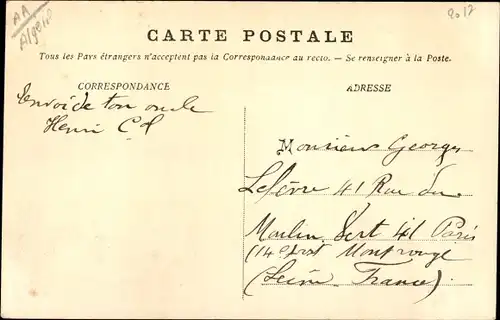 AA
Algérie
2017
CARTE POSTALE
Tous les Pays étrangers n'acceptent pas la Correspondance au recto. — Se renseigner à la Poste.
CORRESPONDANCE
ADRESSE
Envoi de ton oncle
Henri
Monsieur Georges
Lefèvre 41 Rue du
Moulin Vert 41 Paris
(14e Montrouge
(Seine France)